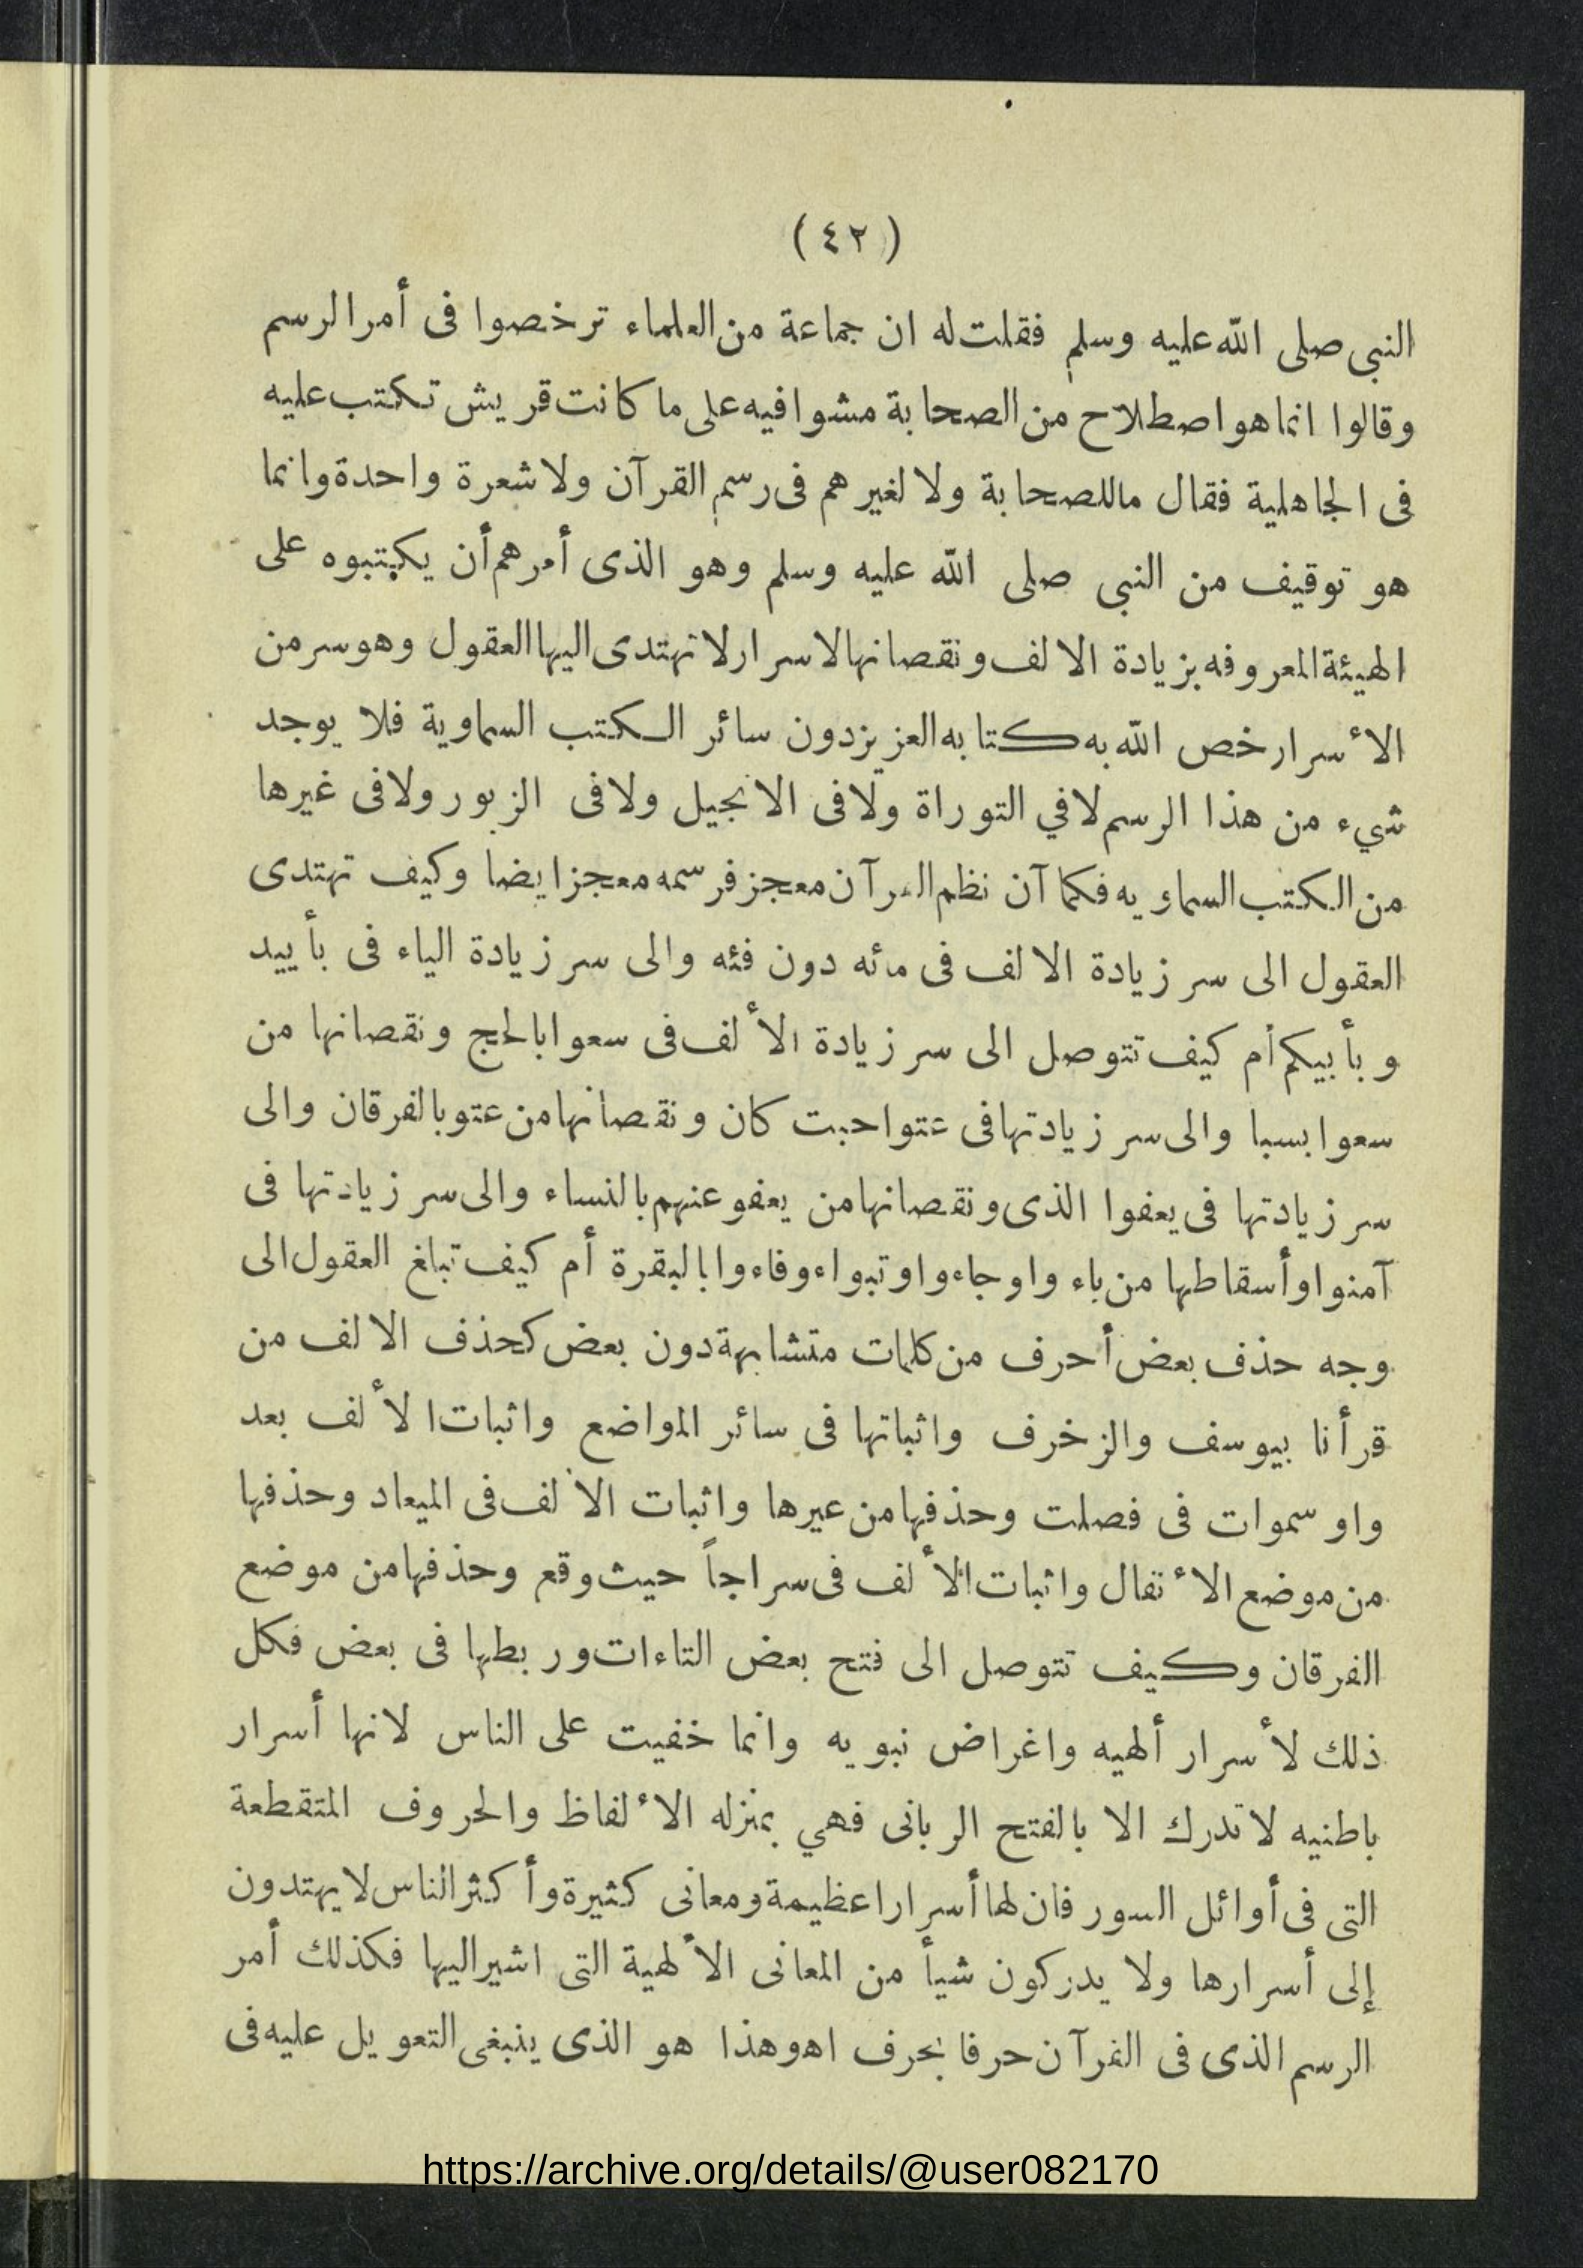 ( ٤٢ )
النبى صلى الله عليه وسلم فقلت له ان جماعة من العلماء ترخصوا فى أمر الرسم
وقالوا انما هو اصطلاح من الصحابة مشوا فيه على ما كانت قريش تكتب عليه
فى الجاهلية فقال ما للصحابة ولا لغيرهم فى رسم القرآن ولا شعرة واحدة وانما
هو توقيف من النبى صلى الله عليه وسلم وهو الذى أمرهم أن يكتبوه على
الهيئة المعروفه بزيادة الالف ونقصانها لاسرار لا تهتدى اليها العقول وهو سر من
الأسرار خص الله به كتابه العزيز دون سائر الكتب السماوية فلا يوجد
شيء من هذا الرسم لا في التوراة ولا فى الانجيل ولا فى الزبور ولا فى غيرها
من الكتب السماويه فكما آن نظم القرآن معجز فرسمه معجز ايضا وكيف تهتدى
العقول الى سر زيادة الالف فى مائه دون فئه والى سر زيادة الياء فى بأييد
وبأييكم أم كيف تتوصل الى سر زيادة الألف فى سعوا بالحج ونقصانها من
سعوا بسبا والى سر زيادتها فى عتوا حيث كان ونقصانها من عتو بالفرقان والى
سر زيادتها فى يعفوا الذى ونقصانها من يعفو عنهم بالنساء والى سر زيادتها فى
آمنوا وأسقاطها من باء واو جاءو او تبواء وفاءوا بالبقرة أم كيف تبلغ العقول الى
وجه حذف بعض أحرف من كلمات متشابهة دون بعض كحذف الالف من
قرأنا بيوسف والزخرف واثباتها فى سائر المواضع واثبات الألف بعد
واو سموات فى فصلت وحذفها من عيرها واثبات الألف فى الميعاد وحذفها
من موضع الأنفال واثبات الألف فى سراجاً حيث وقع وحذفها من موضع
الفرقان وكيف تتوصل الى فتح بعض التاءات وربطها فى بعض فكل
ذلك لأسرار ألهيه واغراض نبويه وانما خفيت على الناس لانها أسرار
باطنيه لا تدرك الا بالفتح الربانى فهي بمنزله الألفاظ والحروف المتقطعة
التى فى أوائل السور فان لها أسرارا عظيمة ومعانى كثيرة وأكثر الناس لا يهتدون
إلى أسرارها ولا يدركون شيأ من المعانى الألهية التى اشير اليها فكذلك أمر
الرسم الذى فى القرآن حرفا بحرف اه وهذا هو الذى ينبغى التعويل عليه فى
https://archive.org/details/@user082170